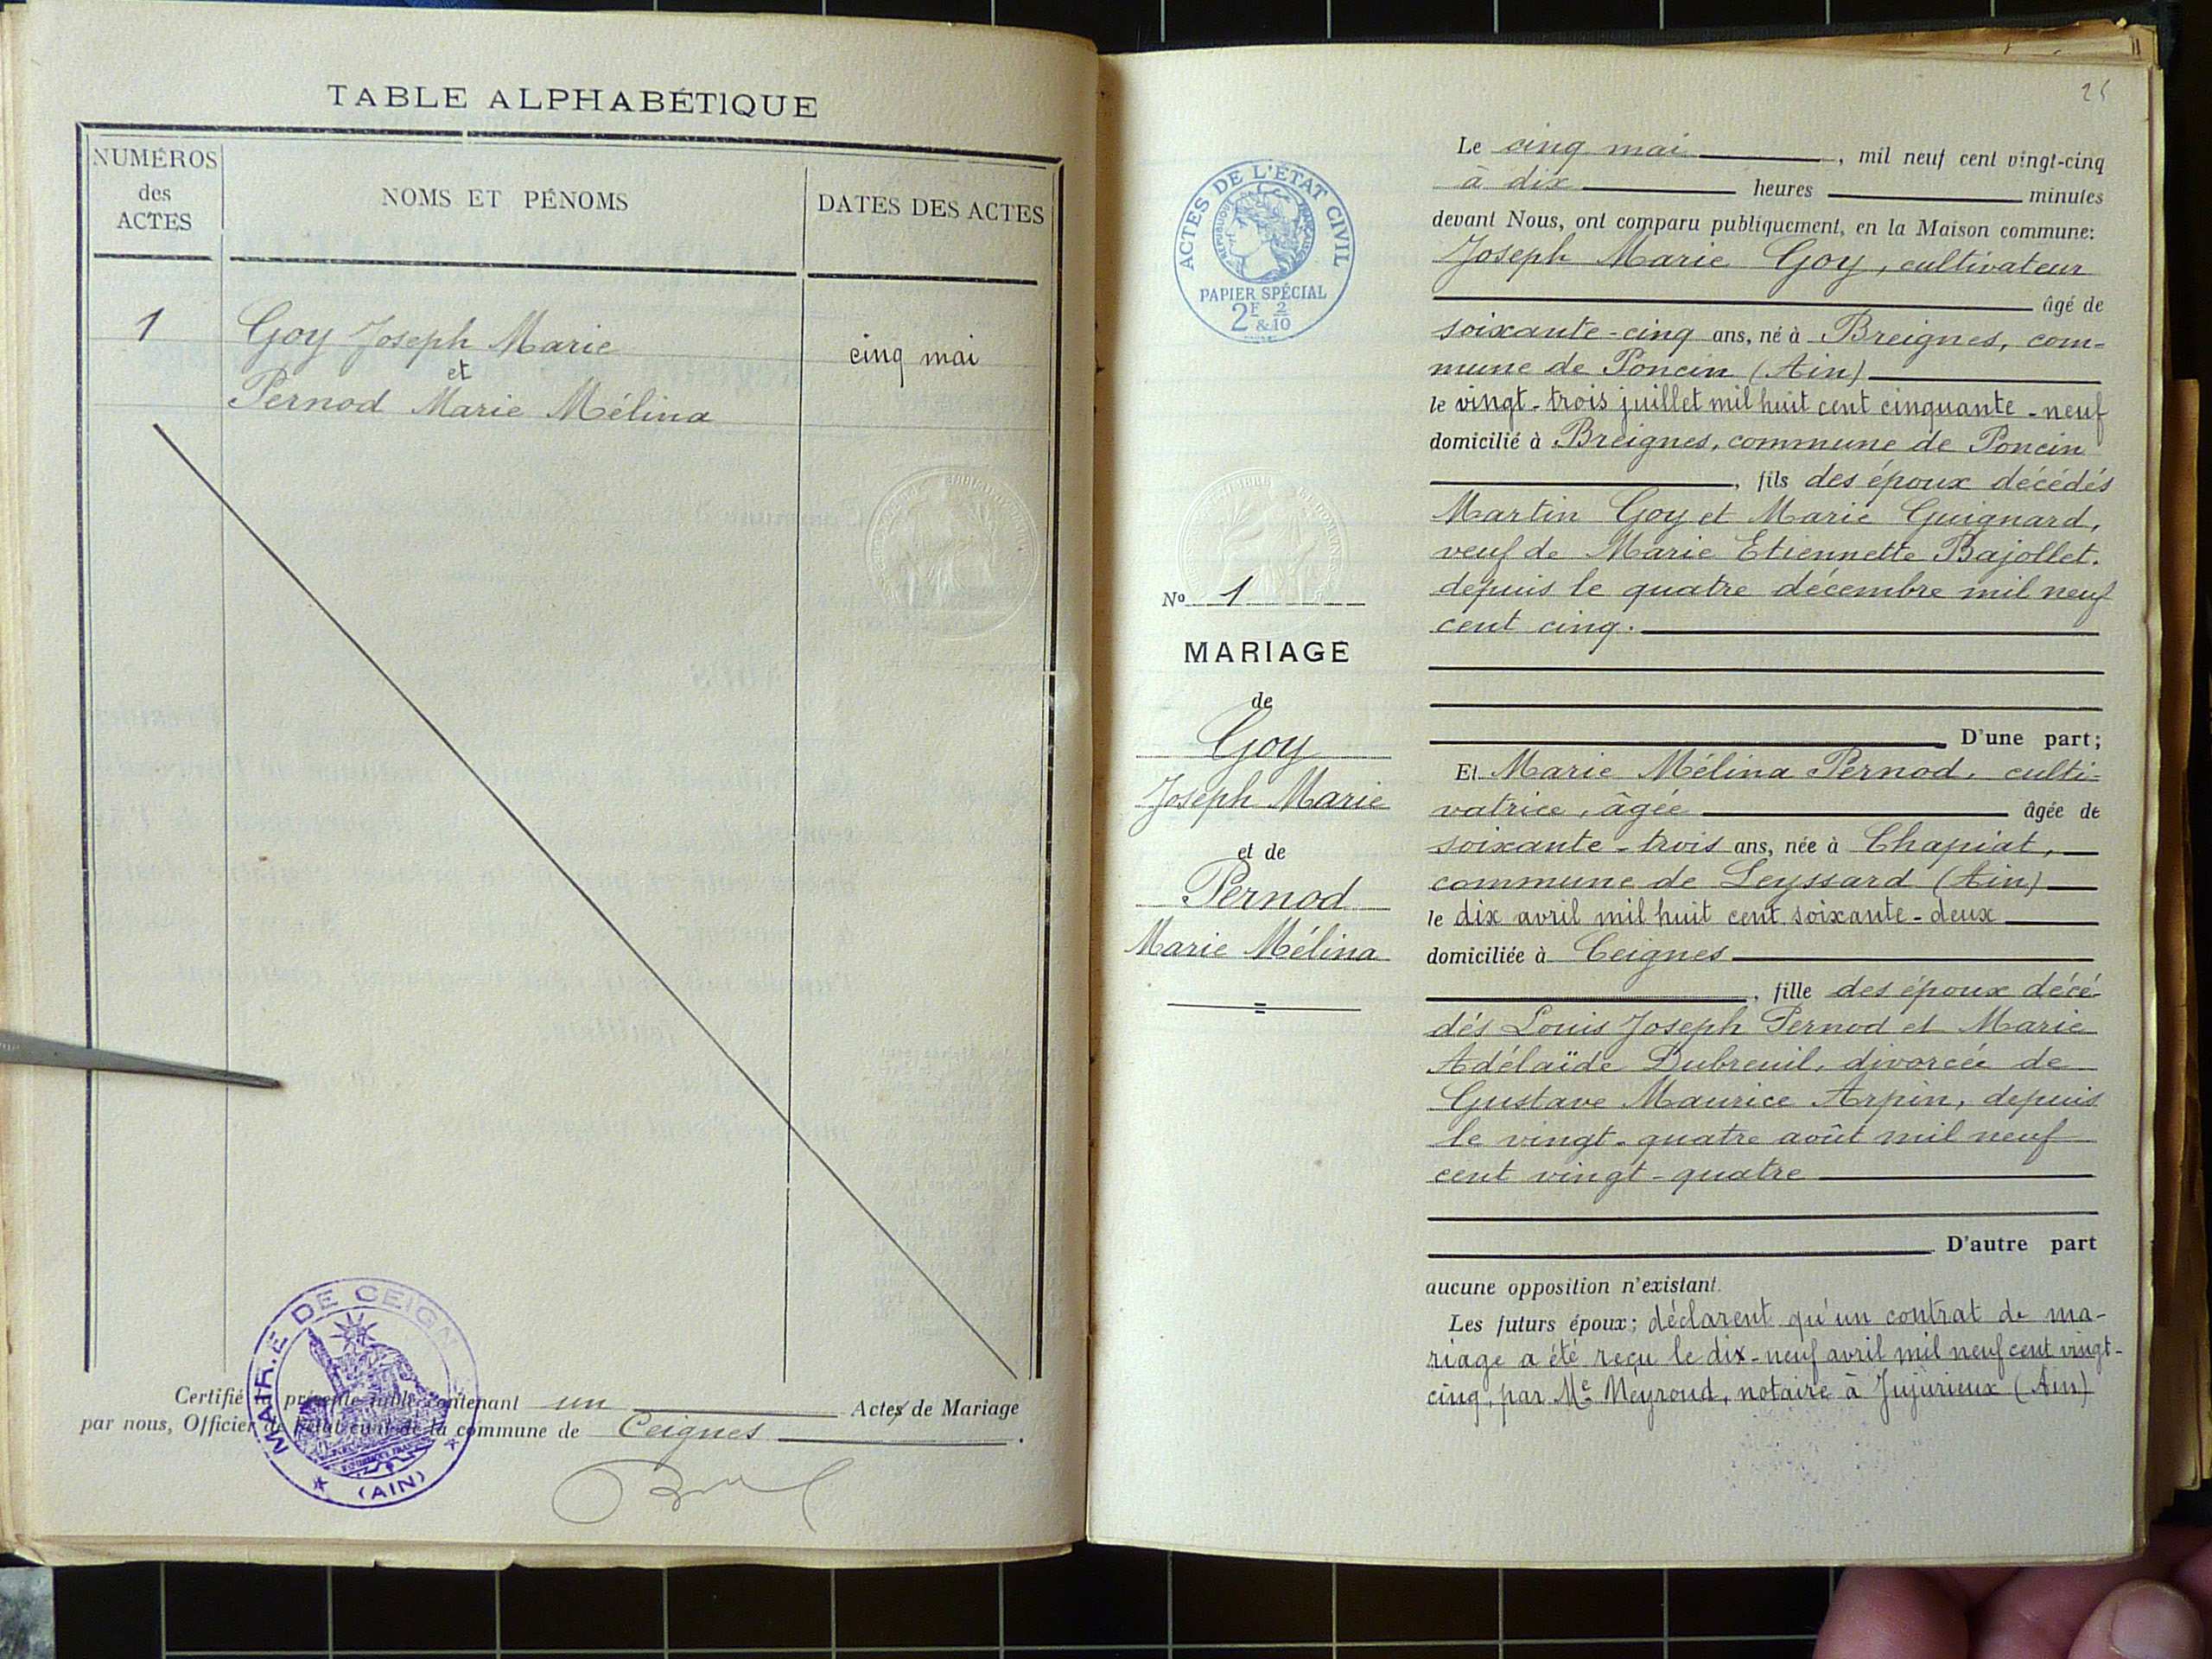 TABLE ALPHABÉTIQUE
NUMÉROS
des
ACTES
NOMS ET PÉNOMS
DATES DES ACTES
1
Goy Joseph Marie
et
Pernod Marie Mélina
cinq mai
MAIRIE DE CEIGN
(AIN)
Certifié la présente table contenant un Actes de Mariage
par nous, Officier de l'état civil de la commune de Ceignes .
25
ACTES DE L'ÉTAT CIVIL
RÉPUBLIQUE FRANÇAISE
PAPIER SPÉCIAL
2F 2
&10
No 1
MARIAGE
de
Goy
Joseph Marie
et de
Pernod
Marie Mélina
Le cinq mai , mil neuf cent vingt-cinq
à dix heures minutes
devant Nous, ont comparu publiquement, en la Maison commune:
Joseph Marie Goy, cultivateur
âgé de
soixante-cinq ans, né à Breignes, com-
mune de Poncin (Ain)
le vingt-trois juillet mil huit cent cinquante-neuf
domicilié à Breignes, commune de Poncin
, fils des époux décédés
Martin Goy et Marie Guignard,
veuf de Marie Etiennette Bajollet.
depuis le quatre décembre mil neuf
cent cinq.
D'une part;
Et Marie Mélina Pernod, culti-
vatrice, âgée âgée de
soixante-trois ans, née à Chapiat,
commune de Leyssard (Ain)
le dix avril mil huit cent soixante-deux
domiciliée à Ceignes
, fille des époux décé-
dés Louis Joseph Pernod et Marie
Adélaïde Dubreuil, divorcée de
Gustave Maurice Arpin, depuis
le vingt-quatre août mil neuf
cent vingt-quatre
D'autre part
aucune opposition n'existant.
Les futurs époux; déclarent qu'un contrat de ma-
riage a été reçu le dix-neuf avril mil neuf cent vingt-
cinq, par Me Meyroud, notaire à Jujurieux (Ain)